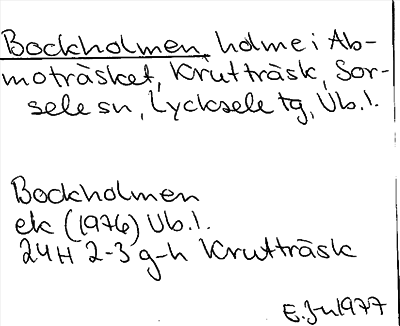 Bockholmen, holme i Ab-
moträsket, Krutträsk, Sor-
sele sn, Lycksele tg, Vb.l.
Bockholmen
ek (1976) Vb.l.
24H 2-3 g-h Krutträsk
1977